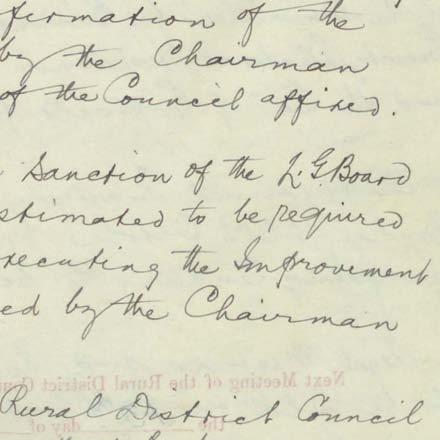 fermation of the
by the Chairman
of the Council affixed.
Sanction of the L. G. Board
stimated to be required
xecuting the Improvement
ed by the Chairman
Next Meeting of the Rural District Coun
Rural District Council
the day of